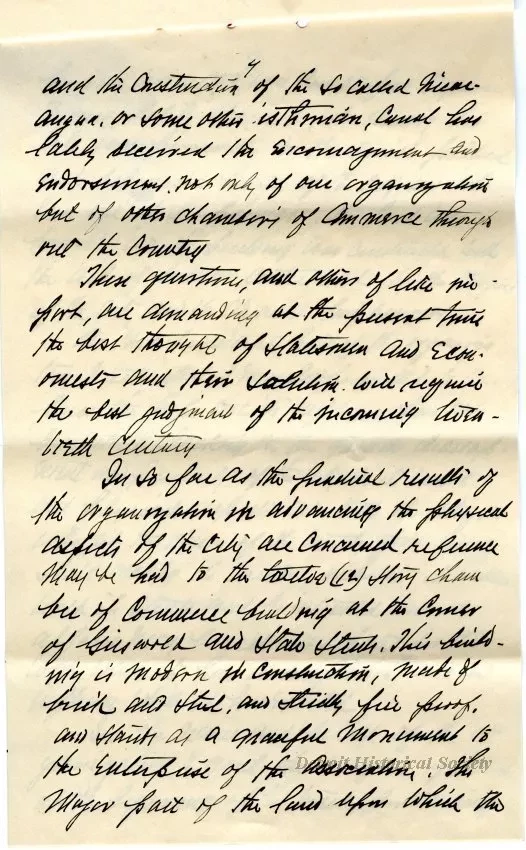 4
and the Construction of the so called Nicar-
augua. or some other isthmian, Canal has
lately received the Encouragement and
Endorsement. not only of our organization
but of other chambers of Commerce through
out the Country
These questions, and others of like im-
port, are demanding at the present time
the best thought of Statesmen and Econ-
omists and their Solution. will require
the best judgment of the incoming twen-
tieth Century
In so far as the practical results of
the organization in advancing the physical
aspects of the City are Concerned reference
may be had to the twelve (12) Story cham
ber of Commerce building at the Corner
of Griswold and State Streets. This build-
ing is modern in Construction, made of
brick and Steel, and strictly fire proof.
and stands as a graceful Monument to
the Enterprise of the Association. The
Major part of the land upon which the
Detroit Historical Society